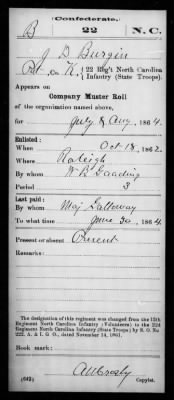 Confederate.
B 22 N.C.
J D Burgin
Pvt, Co. K, 22 Reg't North Carolina
Infantry (State Troops).
Appears on
Company Muster Roll
of the organization named above,
for July & Aug, 1864
Enlisted:
When Oct 18, 1862
Where Raleigh
By whom W B
Period 3
Last paid:
By whom Maj Galloway
To what time June 30, 1864
Present or absent Present
Remarks:
The designation of this regiment was changed from the 12th
Regiment North Carolina Infantry (Volunteers) to the 22d
Regiment North Carolina Infantry (State Troops) by S. O. No.
222, A. & I. G. O., dated November 14, 1861.
Book mark:
(642) Copyist.